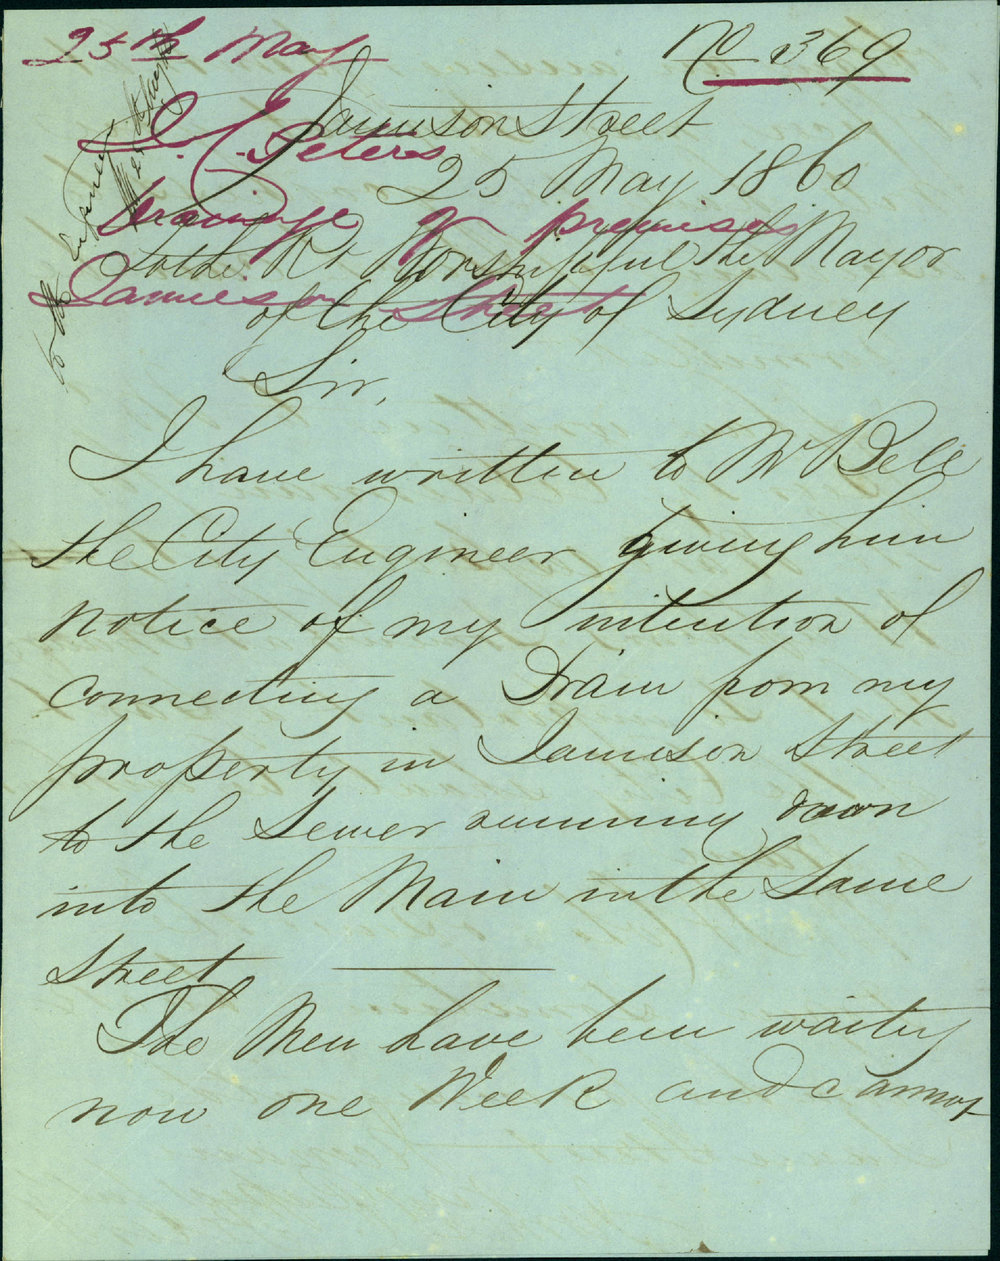 25th May
No 369
Jamison Street
J. C. Peters
25 May 1860
Drainage of premises
To the Rt Worshipful the Mayor
Jamieson Street
of the City of Sydney
Sir,
I have written to Mr Bell
the City Engineer giving him
notice of my intention of
connecting a Drain from my
property in Jamison Street
to the Sewer running down
into the Main in the Same
Street
The Men have been waiting
now one Week and cannot